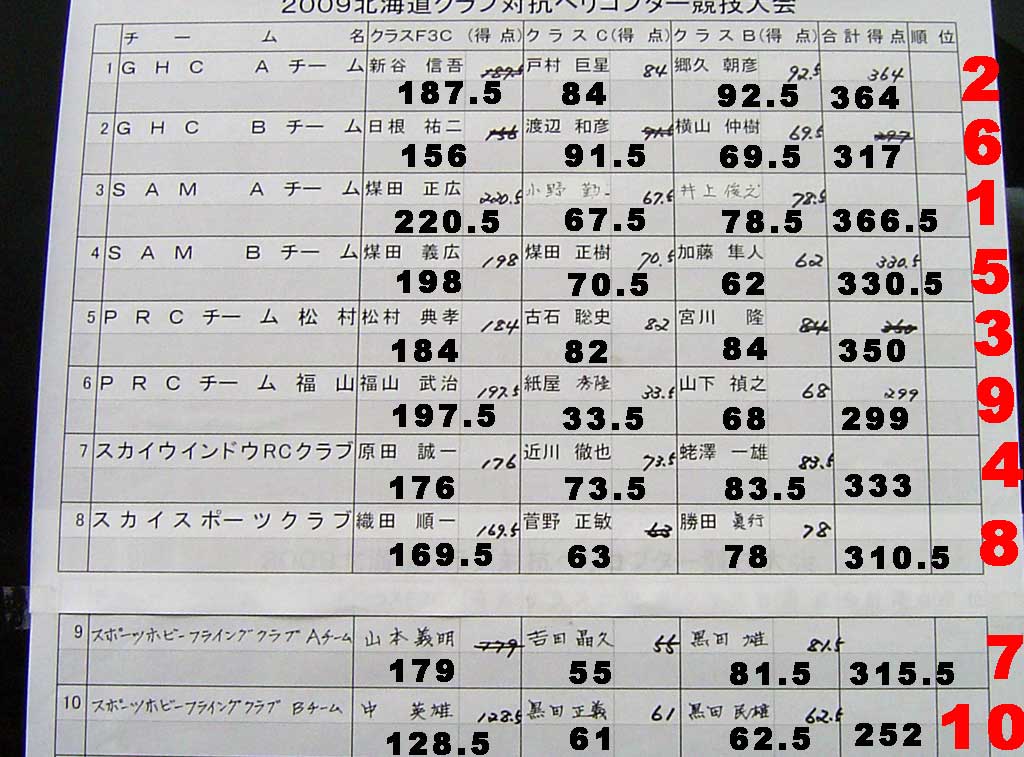 2009北海道クラブ対抗ヘリコプター競技大会
チーム名 クラスF3C (得点) クラスC(得点) クラスB(得点) 合計得点 順位
1 GHC Aチーム 新谷 信吾 187.5 戸村 巨星 84 郷久 朝彦 92.5 364
187.5 84 92.5 364 2
2 GHC Bチーム 日根 祐二 156 渡辺 和彦 91.5 横山 仲樹 69.5 297
156 91.5 69.5 317 6
3 SAM Aチーム 煤田 正広 220.5 小野 勤二 67.5 井上俊之 78.5
220.5 67.5 78.5 366.5 1
4 SAM Bチーム 煤田 義広 198 煤田 正樹 70.5 加藤 隼人 62 330.5
198 70.5 62 330.5 5
5 PRCチーム松村 松村 典孝 184 古石 聡史 82 宮川 隆 84 350
184 82 84 350 3
6 PRCチーム福山 福山 武治 197.5 紙屋 秀隆 33.5 山下 禎之 68 299
197.5 33.5 68 299 9
7 スカイウインドウRCクラブ 原田 誠一 176 近川 徹也 73.5 蛯澤 一雄 83.5
176 73.5 83.5 333 4
8 スカイスポーツクラブ 織田 順一 169.5 菅野 正敏 63 勝田 眞行 78
169.5 63 78 310.5 8
9 スポーツホビーフライングクラブAチーム 山本義明 179 吉田晶久 55 黒田 雄 81.5
179 55 81.5 315.5 7
10 スポーツホビーフライングクラブBチーム 中 英雄 128.5 黒田正義 61 黒田民雄 62.5
128.5 61 62.5 252 10